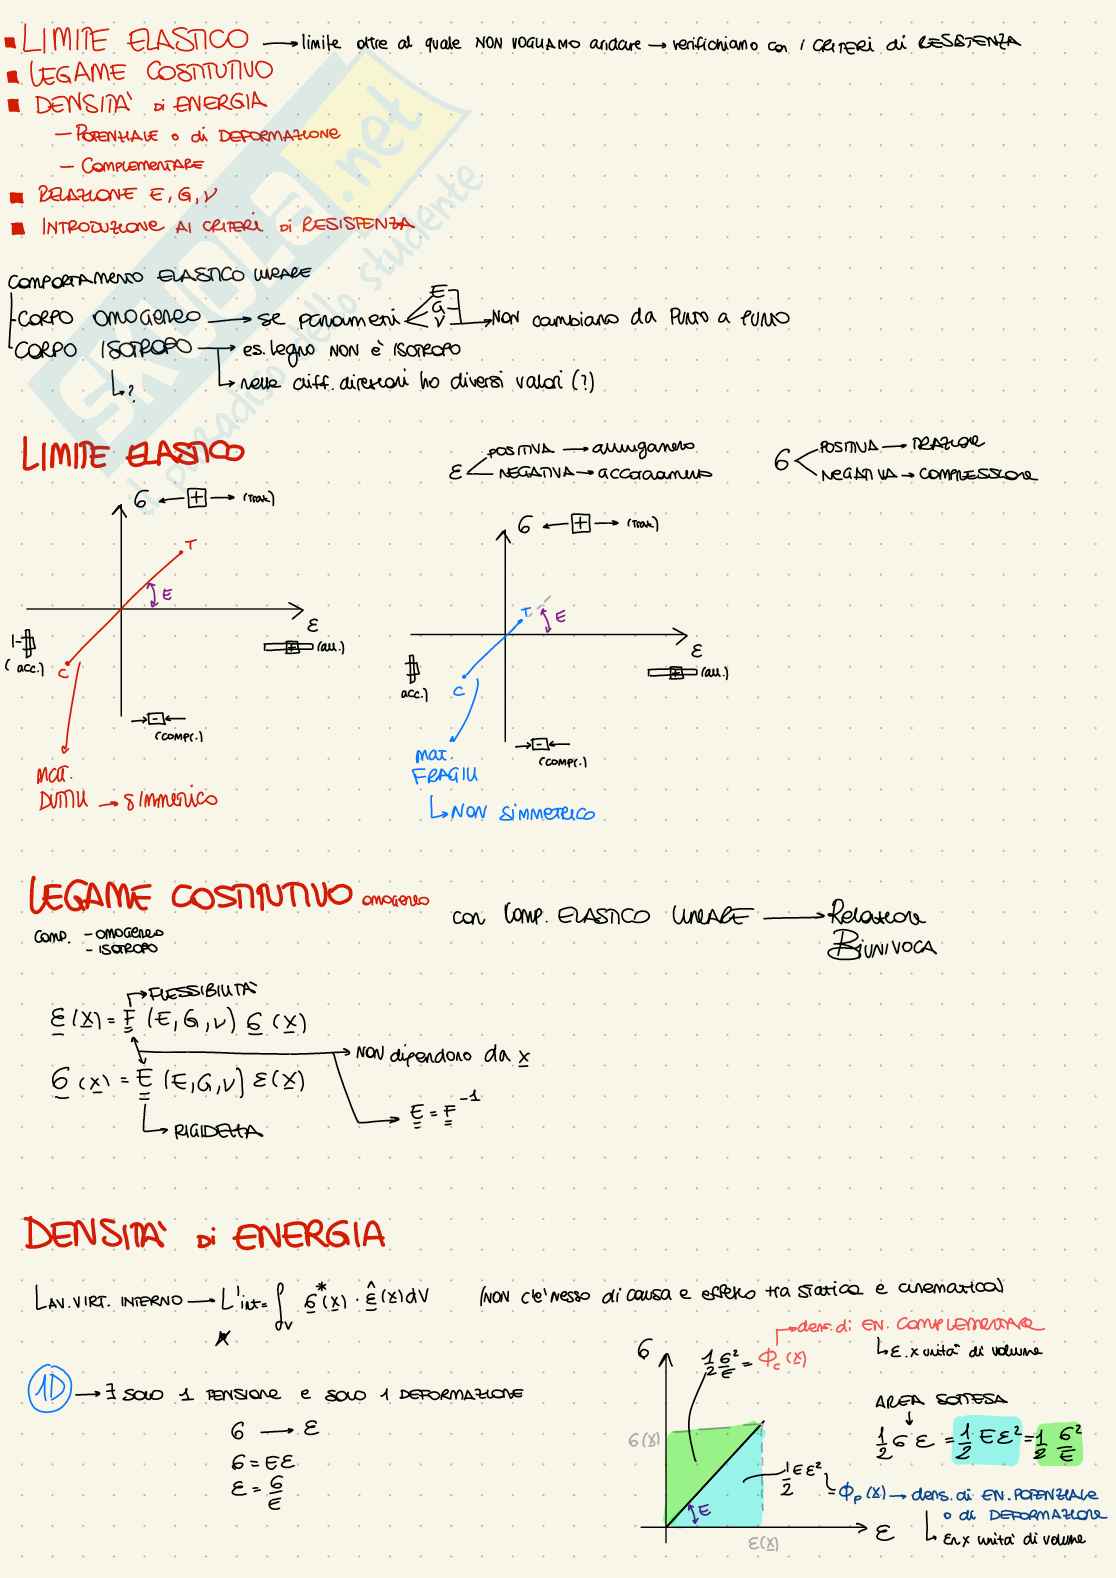 ▪ LIMITE ELASTICO → limite oltre al quale NON VOGLIAMO andare → verifichiamo con i CRITERI di RESISTENZA
▪ LEGAME COSTITUTIVO
▪ DENSITA' di ENERGIA
– POTENZIALE o di DEFORMAZIONE
– COMPLEMENTARE
▪ RELAZIONE E, G, ν
▪ INTRODUZIONE AI CRITERI di RESISTENZA
COMPORTAMENTO ELASTICO LINEARE
- CORPO OMOGENEO → se parametri E G ν → NON cambiano da PUNTO a PUNTO
- CORPO ISOTROPO → es. legno NON è ISOTROPO
↳ ?
↳ nelle diff. direzioni ho diversi valori (?)
SKUOLA.net
il paradiso dello studente
LIMITE ELASTICO
ε POSITIVA → allungamento
NEGATIVA → accorciamento
σ POSITIVA → TRAZIONE
NEGATIVA → COMPRESSIONE
σ ← + → (Traz)
T
E
ε
(acc.)
+ (all.)
C
→ - ←
(compr.)
mat.
DUTTILI → SIMMETRICO
σ ← + → (Traz)
T
E
ε
acc.)
+ (all.)
C
→ - ←
(compr.)
mat.
FRAGILI
↳ NON SIMMETRICO
LEGAME COSTITUTIVO omogeneo
con Comp. ELASTICO LINEARE → Relazione
BIUNIVOCA
comp. - OMOGENEO
- ISOTROPO
→ FLESSIBILITA'
ε(x) = F (E, G, ν) σ (x)
→ NON dipendono da x
σ (x) = E (E, G, ν) ε(x)
E = F⁻¹
→ RIGIDEZZA
DENSITA' di ENERGIA
LAV. VIRT. INTERNO → L'int = ∫V σ*(x) · ε̂(x) dV (NON c'è nesso di causa e effetto tra statica e cinematica)
1D → ∃ SOLO 1 TENSIONE e SOLO 1 DEFORMAZIONE
σ → ε
σ = Eε
ε = σ/E
σ
→ dens. di EN. COMPLEMENTARE
1/2 σ²/E = Φc (x)
↳ E. x unità di volume
AREA SOTTESA
1/2 σ ε = 1/2 Eε² = 1/2 σ²/E
σ(x)
1/2 Eε² = Φp (x) → dens. di EN. POTENZIALE
o di DEFORMAZIONE
↳ En x unità di volume
E
ε
ε(x)